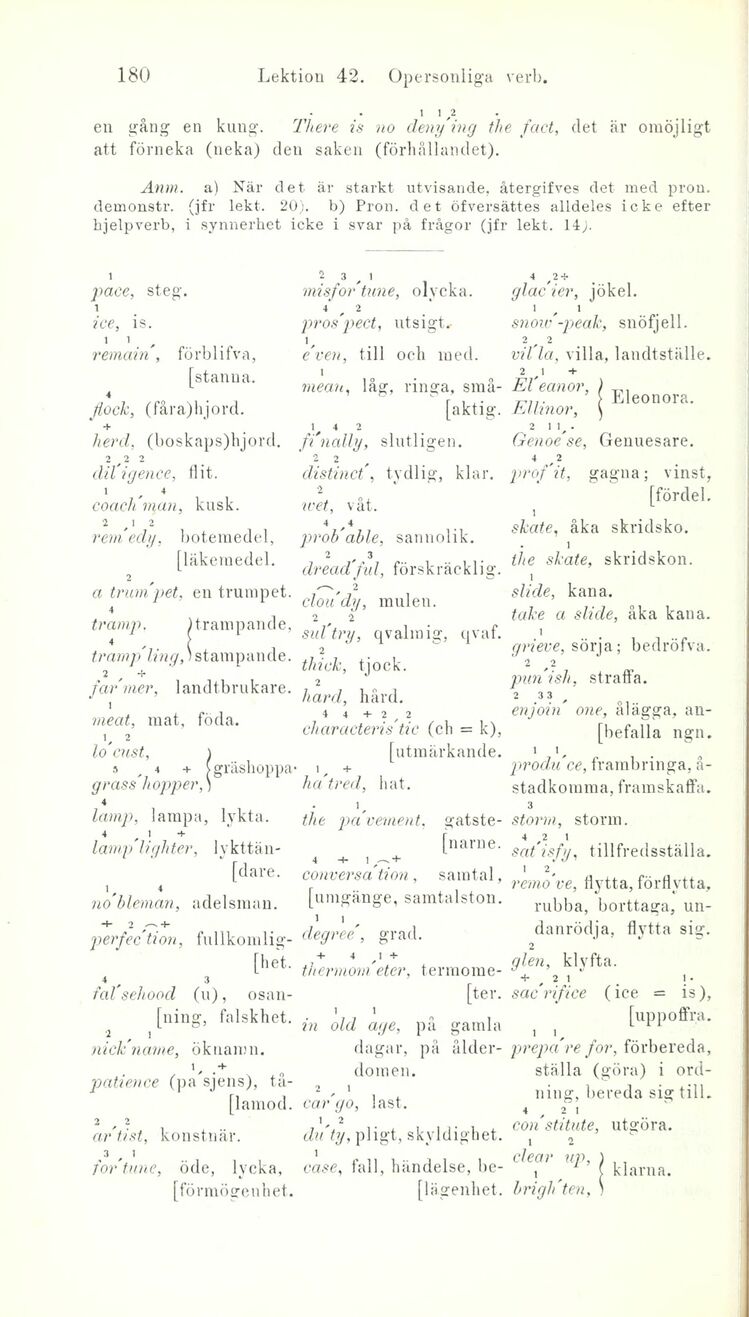 180 Lektion 42. Opersonliga verb.
en gång en kung. There is no deny'ing the fact, det är omöjligt
att förneka (neka) den saken (förhållandet).
Anm. a) När det är starkt utvisande, återgifves det med pron.
demonstr. (jfr lekt. 20). b) Pron. det öfversättes alldeles icke efter
hjelpverb, i synnerhet icke i svar på frågor (jfr lekt. 14).
pace, steg.
ice, is.
remain', förblifva,
[stanna.
flock, (fåra)hjord.
herd, (boskaps)hjord.
dil'igence, flit.
coach'man, kusk.
rem'edy, botemedel,
[läkemedel.
a trum'pet, en trumpet.
tramp. } trampande,
tramp'ling, } stampande.
far'mer, landtbrukare.
meat, mat, föda.
lo'cust, }
grass'hopper, } gräshoppa.
lamp, lampa, lykta.
lamp'lighter, lykttän-
[dare.
no'bleman, adelsman.
perfec'tion, fullkomlig-
[het.
fal'sehood (u), osan-
[ning, falskhet.
nick'name, öknamn.
patience (pa'sjens), tå-
[lamod.
ar'tist, konstnär.
for'tune, öde, lycka,
[förmögenhet.
misfor'tune, olycka.
pros'pect, utsigt.
e'ven, till och med.
mean, låg, ringa, små-
[aktig.
fi'nally, slutligen.
distinct', tydlig, klar.
wet, våt.
prob'able, sannolik.
dread'ful, förskräcklig.
clou'dy, mulen.
sul'try, qvalmig, qvaf.
thick, tjock.
hard, hård.
characteris'tic (ch = k),
[utmärkande.
ha'tred, hat.
the pa'vement, gatste-
[narne.
conversa'tion, samtal,
[umgänge, samtalston.
degree', grad.
thermom'eter, termome-
[ter.
in old age, på gamla
dagar, på ålder-
domen.
car'go, last.
du'ty, pligt, skyldighet.
case, fall, händelse, be-
[lägenhet.
glac'ier, jökel.
snow'-peak, snöfjell.
vil'la, villa, landtställe.
El'eanor, } Eleonora.
Ellinor, }
Genoe'se, Genuesare.
prof'it, gagna; vinst,
[fördel.
skate, åka skridsko.
the skate, skridskon.
slide, kana.
take a slide, åka kana.
grieve, sörja; bedröfva.
pun'ish, straffa.
enjoin' one, ålägga, an-
[befalla ngn.
produ'ce, frambringa, å-
stadkomma, framskaffa.
storm, storm.
sat'isfy, tillfredsställa.
remo've, flytta, förflytta,
rubba, borttaga, un-
danrödja, flytta sig.
glen, klyfta.
sac'rifice (ice = is),
[uppoffra.
prepa're for, förbereda,
ställa (göra) i ord-
ning, bereda sig till.
con'stitute, utgöra.
clear up, } klarna.
brigh'ten, }